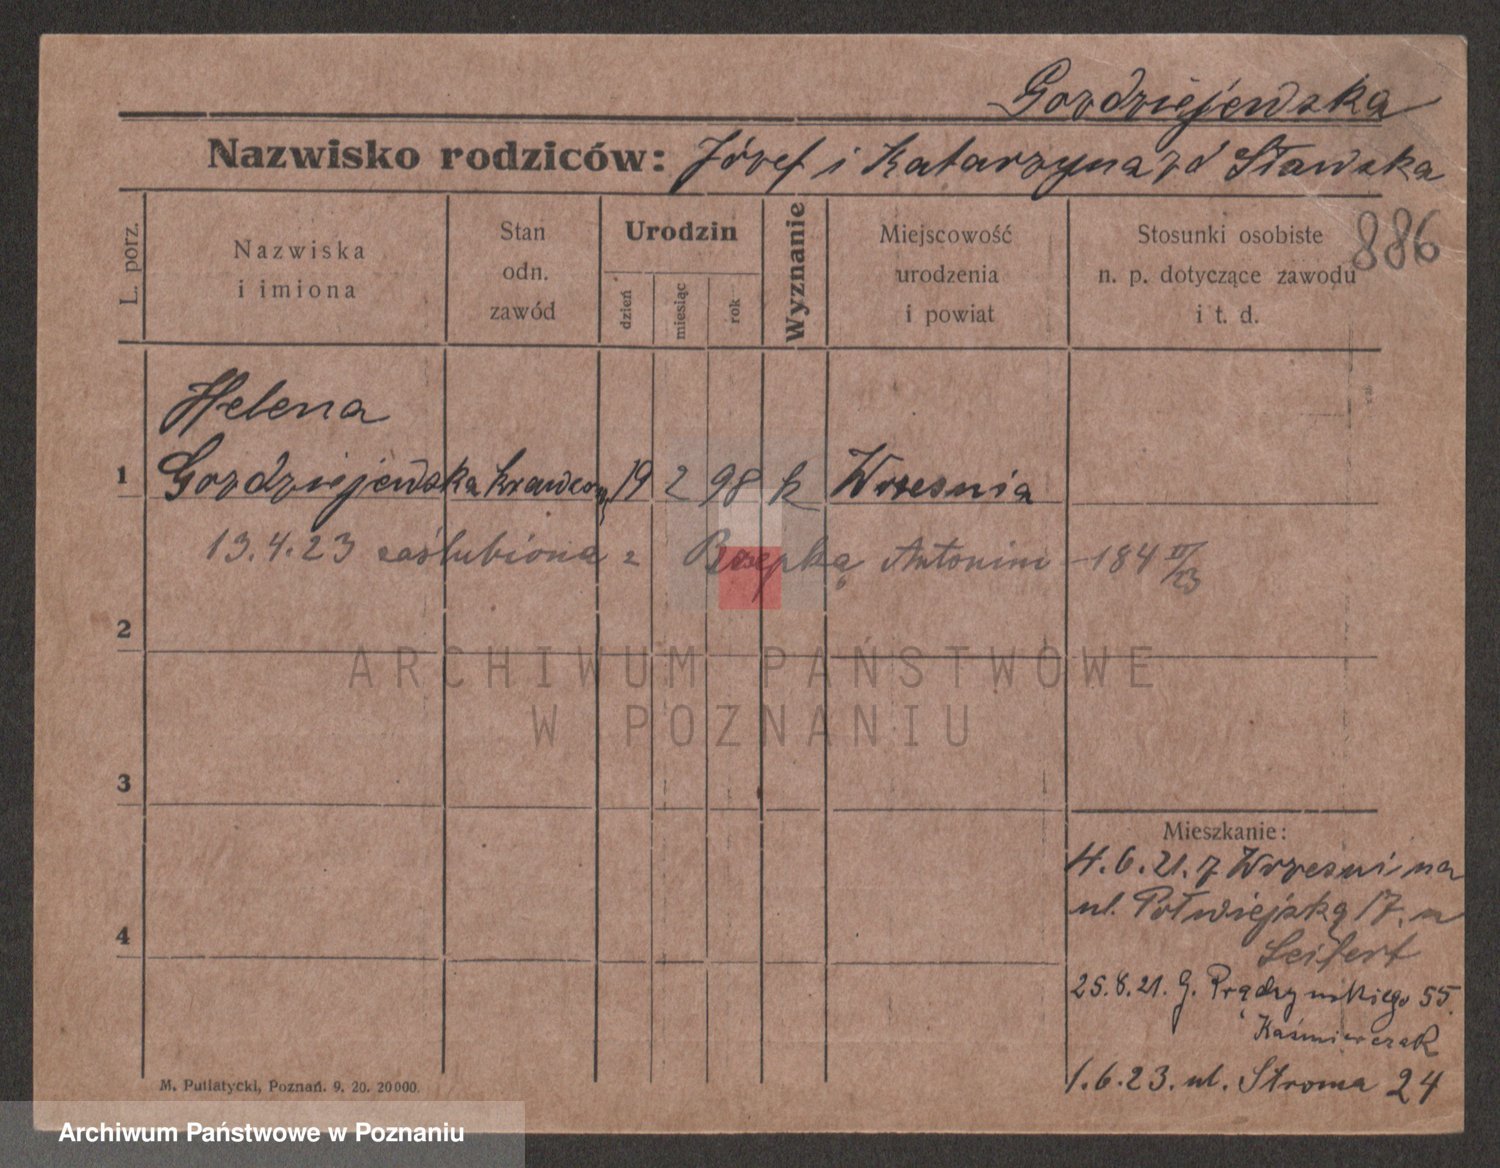 Gozdziejewska
Nazwisko rodziców: Józef i Katarzyna zd Sławska
886
L. porz.
Nazwiska
i imiona
Stan
odn.
zawód
Urodzin
dzień
miesiąc
rok
Wyznanie
Miejscowość
urodzenia
i powiat
Stosunki osobiste
n. p. dotyczące zawodu
i t. d.
Helena
1 Gozdziejewska krawcowa 19 2 98 k Wrzesnia
13.4.23 zaślubiona z Rzepką Antonim - 184 II/23
2
3
4
Mieszkanie:
4.6.21. z Wrzesni na
ul. Półwiejską 17. u
Seifert
25.8.21. G. Prądzynskiego 55.
Kaśmierczak
1.6.23. ul. Stroma 24
M. Putiatycki, Poznań. 9. 20. 20000.
ARCHIWUM PAŃSTWOWE
W POZNANIU
Archiwum Państwowe w Poznaniu